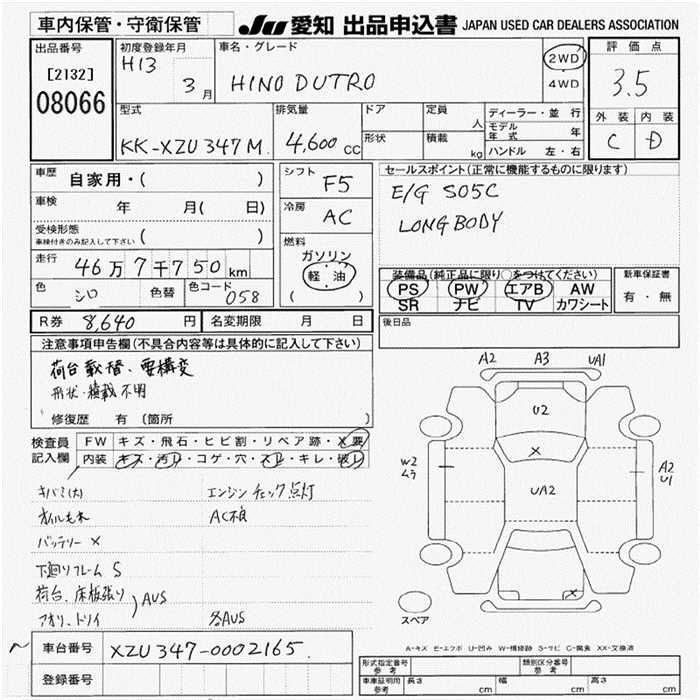 車内保管・守衛保管 JU 愛知 出品申込書 JAPAN USED CAR DEALERS ASSOCIATION
出品番号
[2132]
08066
初度登録年月
H13
3月
車名・グレード
HINO DUTRO
2WD
4WD
評価点
3.5
外装 内装
C D
型式
KK-XZU347M
排気量
4,600cc
ドア
形状
定員
人
積載
kg
ディーラー・並行
モデル年式 年
ハンドル 左・右
車歴 自家用・( )
車検 年 月( 日)
受検形態
車検付きのみ記入して下さい ( )
走行 46万7千750km
色 シロ 色替 色コード 058
シフト F5
冷房 AC
燃料
ガソリン
軽・油
( )
セールスポイント(正常に機能するものに限ります)
E/G S05C
LONG BODY
装備品(純正品に限り○をつけてください)
PS PW エアB AW
SR ナビ TV カワシート
新車保証書
有・無
R券 8,640円 名変期限 月 日
後日品
注意事項申告欄(不具合内容等は具体的に記入して下さい)
荷台載替、要構変
形状・積載不明
修復歴 有 (箇所 )
検査員記入欄
FW キズ・飛石・ヒビ割・リペア跡・X要
内装 キズ・汚れ・コゲ・穴・スレ・キレ・破レ
キバミ(大) エンジンチェック点灯
オイルモレ AC不良
バッテリー ×
下廻りフレーム S
荷台、床板張り
アオリ、トリイ
AUS
各AUS
A2 A3 UA1
U2
×
UA2
W2
ムラ
A2
U1
×
スペア
A-キズ E-エクボ U-凹み W-補修跡 S-サビ C-腐食 XX-交換済
車台番号 XZU347-0002165
登録番号
形式指定番号 参考
類別区分番号 参考
車車証明用 参考 長さ cm 幅 cm 高さ cm